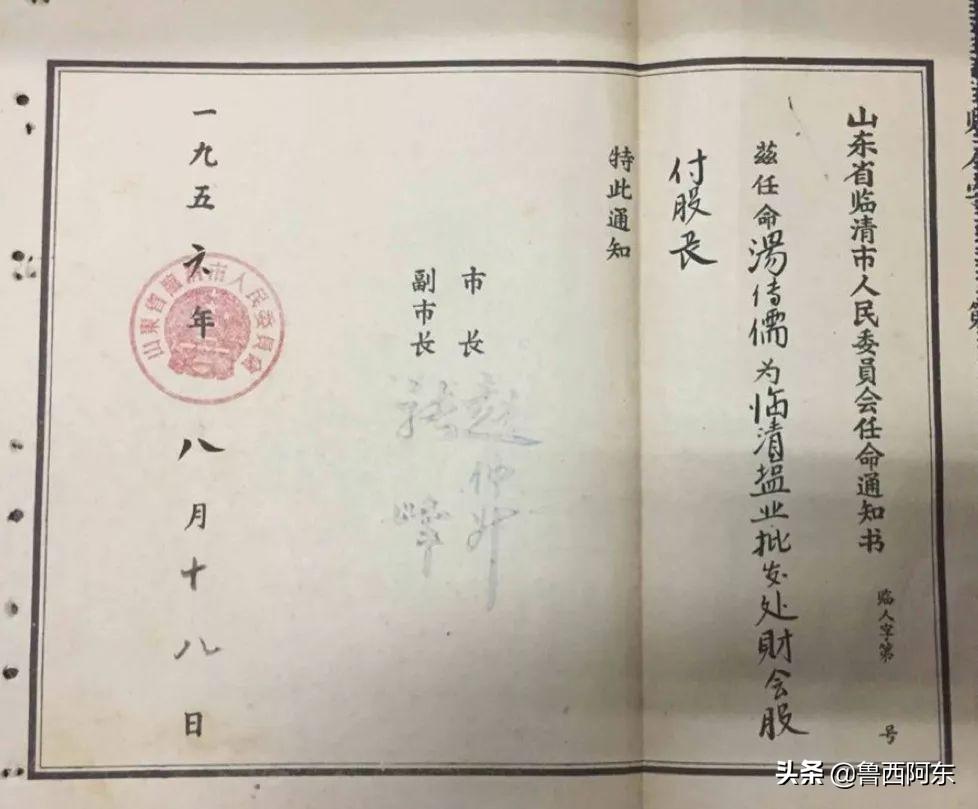 山东省临清市人民委員会任命通知书
临人字第 号
兹任命湯传儒为临清盐业批发处财会股
付股長
特此通知
市長 趙
副市長 張峰
一九五六年八月十八日
山東省臨清市人民委員會
头条 @鲁西阿东